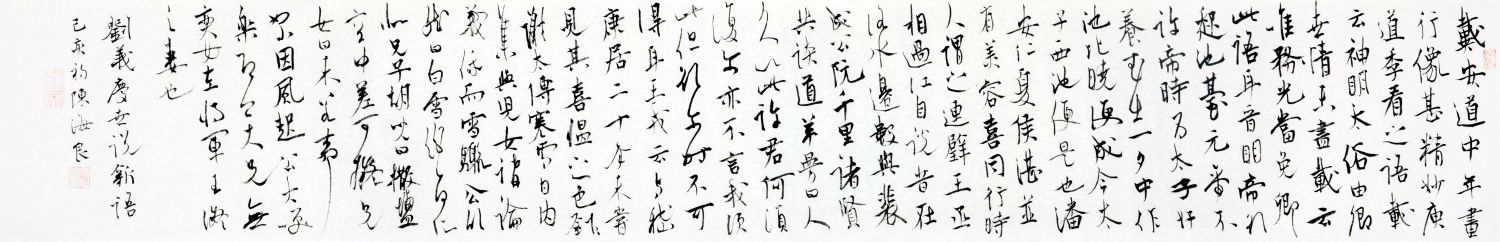 戴安道中年畫
行像甚精妙庾
道季看之語戴
云神明太俗由卿
世情未盡戴云
唯務光當免卿
此語耳晉明帝欲
起池臺元帝不
許帝時為太子好
養武士一夕中作
池比曉便成今太
子西池便是也潘
安仁夏侯湛並
有美容喜同行時
人謂之連璧王丞
相過江自說昔在
洛水邊數與裴
成公阮千里諸賢
共談道羊曼曰人
久以此許君何須
復爾亦不言我須
此但欲爾時不可
得耳王戎云與嵇
康居二十年未嘗
見其喜慍之色
謝太傅寒雪日內
集與兒女講論
義俄而雪驟公欣
然曰白雪紛紛何所
似兄子胡兒曰撒鹽
空中差可擬兄
女曰未若柳
絮因風起公大笑
樂即公大兄無
奕女左將軍王凝
之妻也
劉義慶世說新語
己亥初陳海良